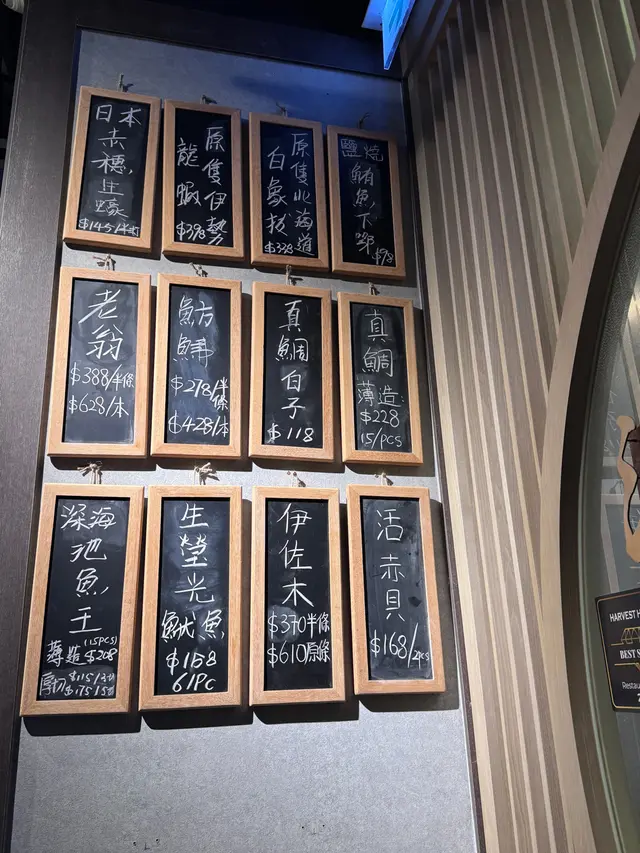 日本
赤穗
生蠔
原隻伊勢
龍蝦
$398
原隻北海道
白象拔
$338
鹽燒
鮪魚下鄂
$98
老翁
$388/半條
$628/本
魴鮄
$278/半條
$428/本
真鯛白子
$118
真鯛
薄造:
$228
15/pcs
深海
池魚王
(15PCS)
薄造 $208
厚切 $115/3切
$175/5切
生瑩光
魷魚
$158
6/PC
伊佐木
$370半條
$610原條
活赤貝
$168/2pcs
HARVEST
BEST